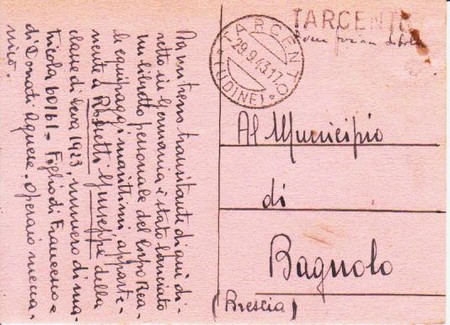 TARCENTO
TARCENTO
29.9.43.17
(UDINE)
Al Municipio
di
Bagnolo
(Brescia)
Da un treno transitante di qui di-
retto in Germania, è stato lanciato
un libretto personale del Corpo Rea-
le equipaggi marittimi apparte-
nente a Giuseppe della
classe di leva 1923, numero di ma-
tricola 60161 - Figlio di Francesco e
di Donati Agnese - operaio mecca-
nico.